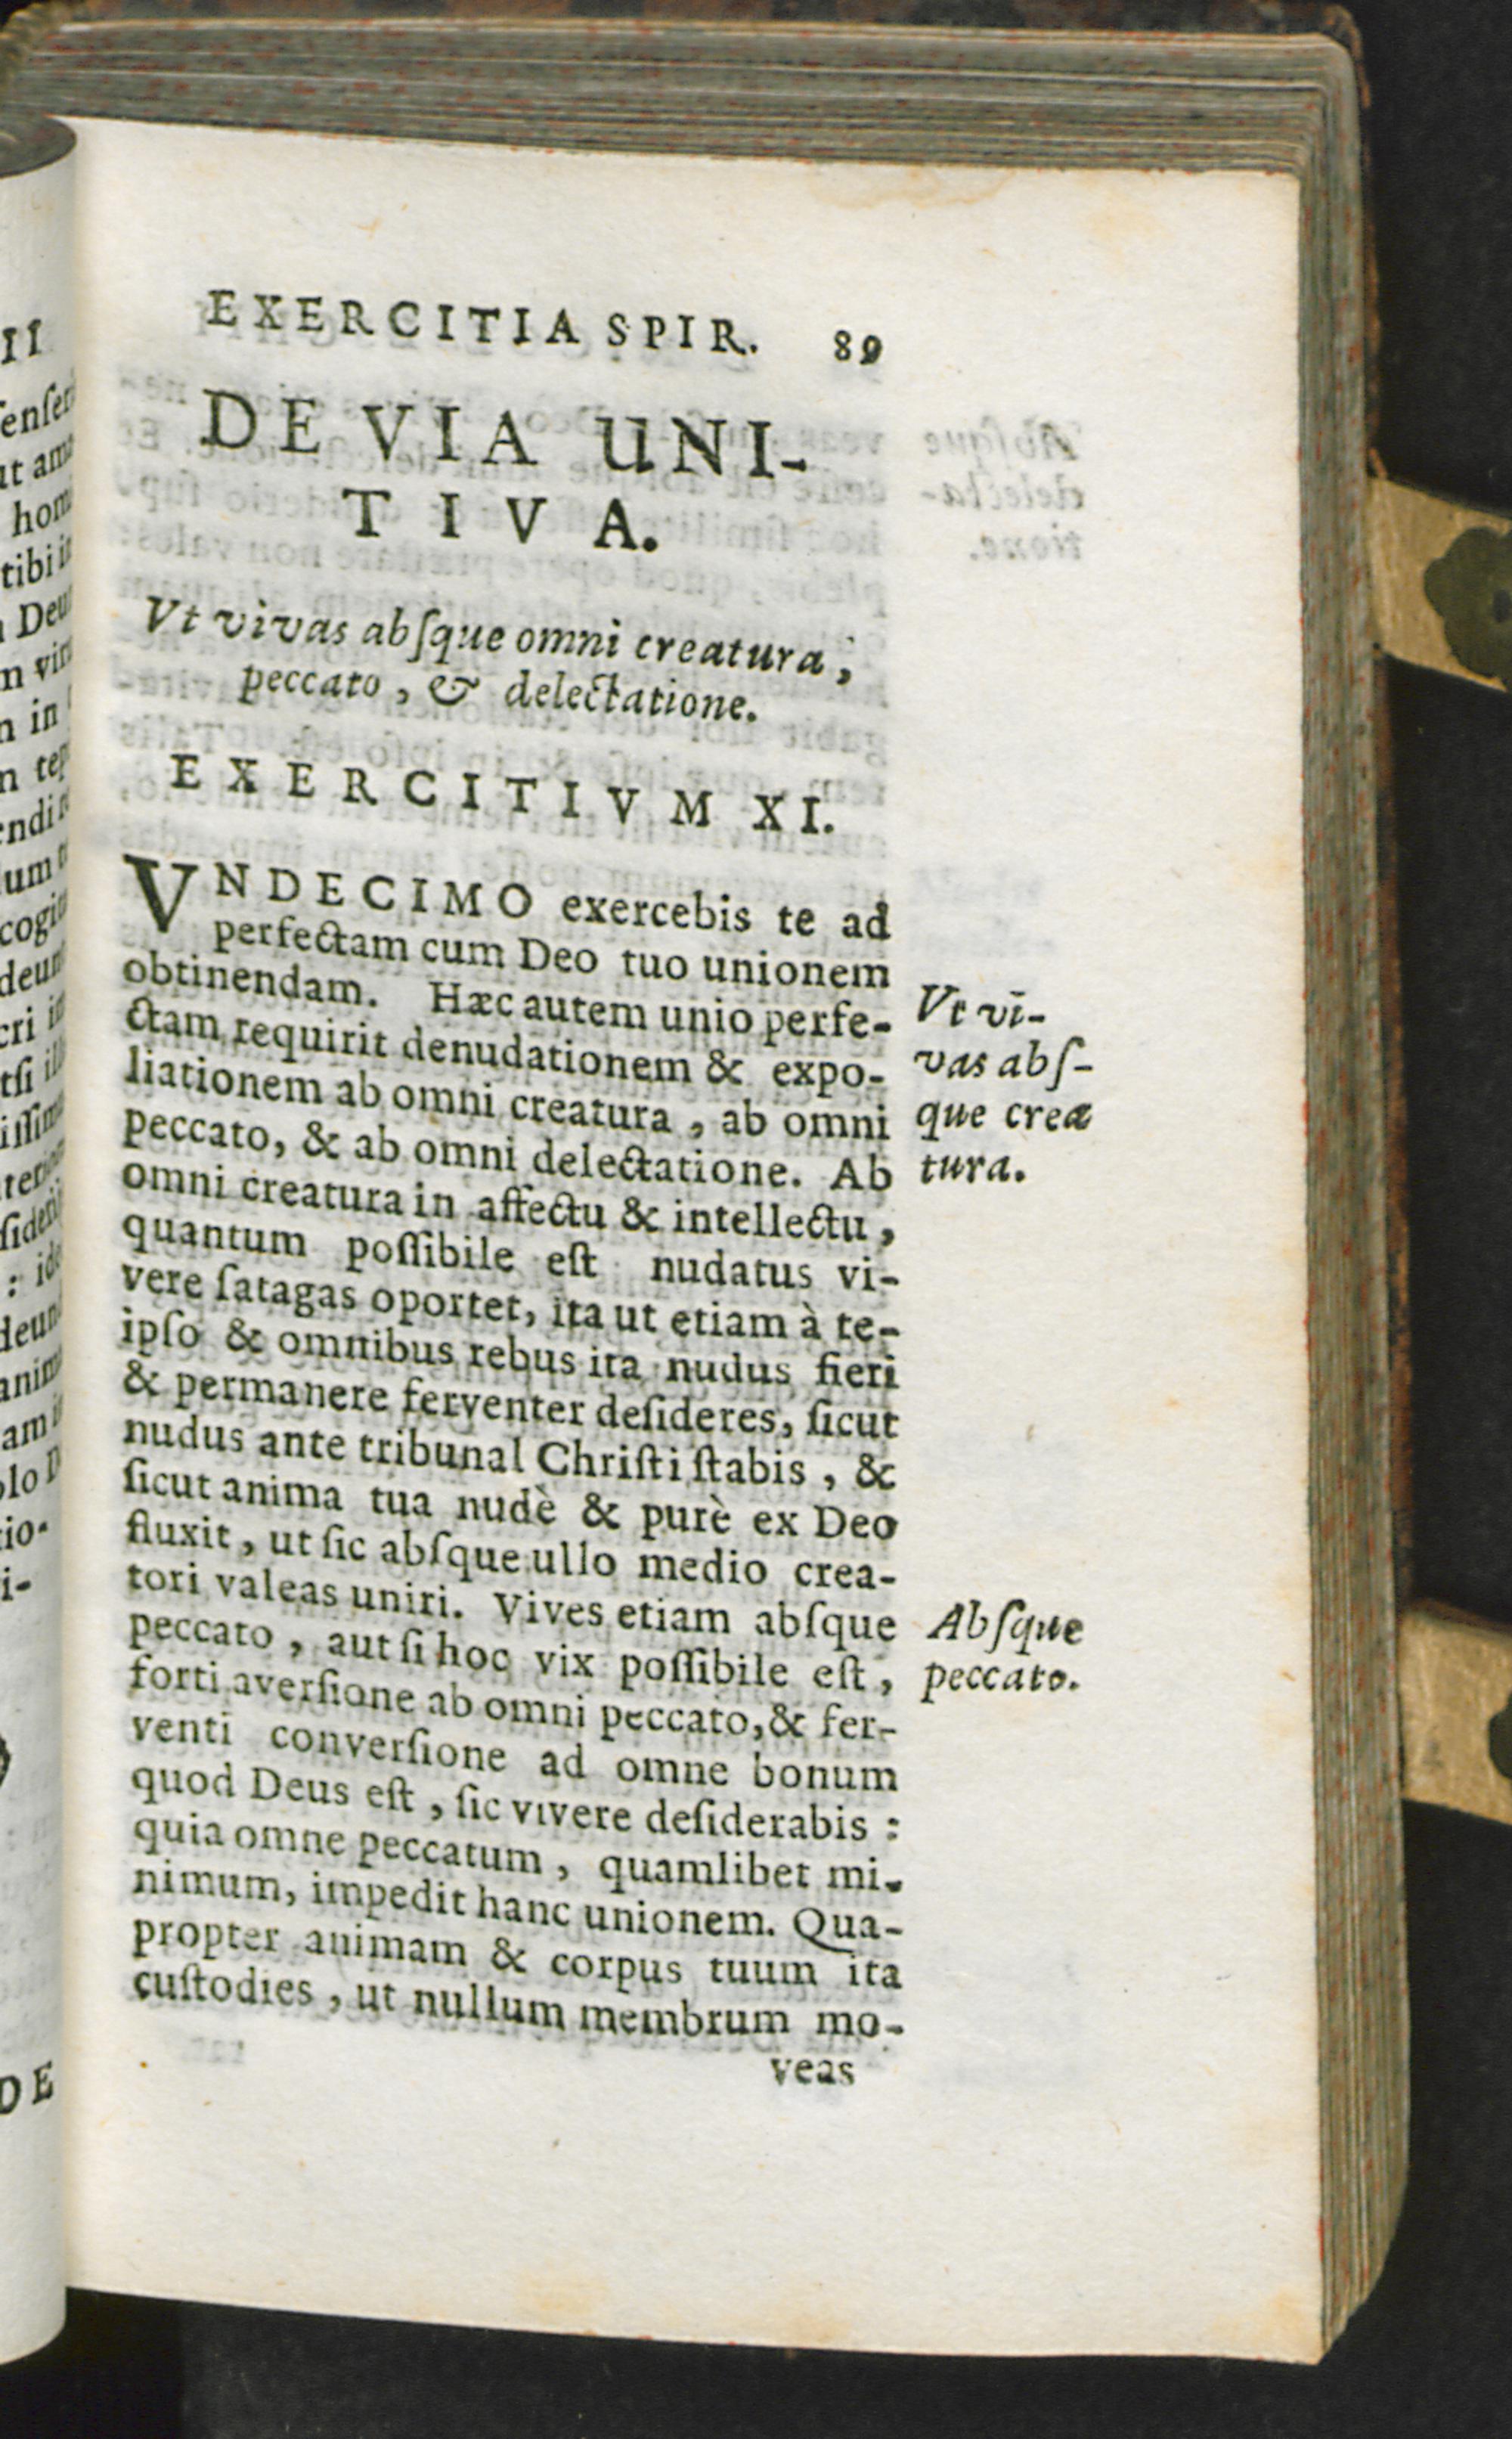 EXERCITIA SPIR. 89
DE VIA UNI-
TIVA.
Vt vivas abſque omni creatura,
peccato, & delectatione.
EXERCITIVM XI.
VNDECIMO exercebis te ad
perfectam cum Deo tuo unionem
obtinendam. Hæc autem unio perfe-
ctam requirit denudationem & expo-
liationem ab omni creatura, ab omni
peccato, & ab omni delectatione. Ab
omni creatura in affectu & intellectu,
quantum poſſibile eſt nudatus vi-
vere ſatagas oportet, ita ut etiam à te-
ipſo & omnibus rebus ita nudus fieri
& permanere ferventer deſideres, ſicut
nudus ante tribunal Chriſti ſtabis, &
ſicut anima tua nudè & purè ex Deo
fluxit, ut ſic abſque ullo medio crea-
tori valeas uniri. Vives etiam abſque
peccato, aut ſi hoc vix poſſibile eſt,
forti averſione ab omni peccato, & fer-
venti converſione ad omne bonum
quod Deus eſt, ſic vivere deſiderabis:
quia omne peccatum, quamlibet mi-
nimum, impedit hanc unionem. Qua-
propter animam & corpus tuum ita
cuſtodies, ut nullum membrum mo-
veas
Vt vi-
vas abſ-
que crea
tura.
Abſque
peccato.